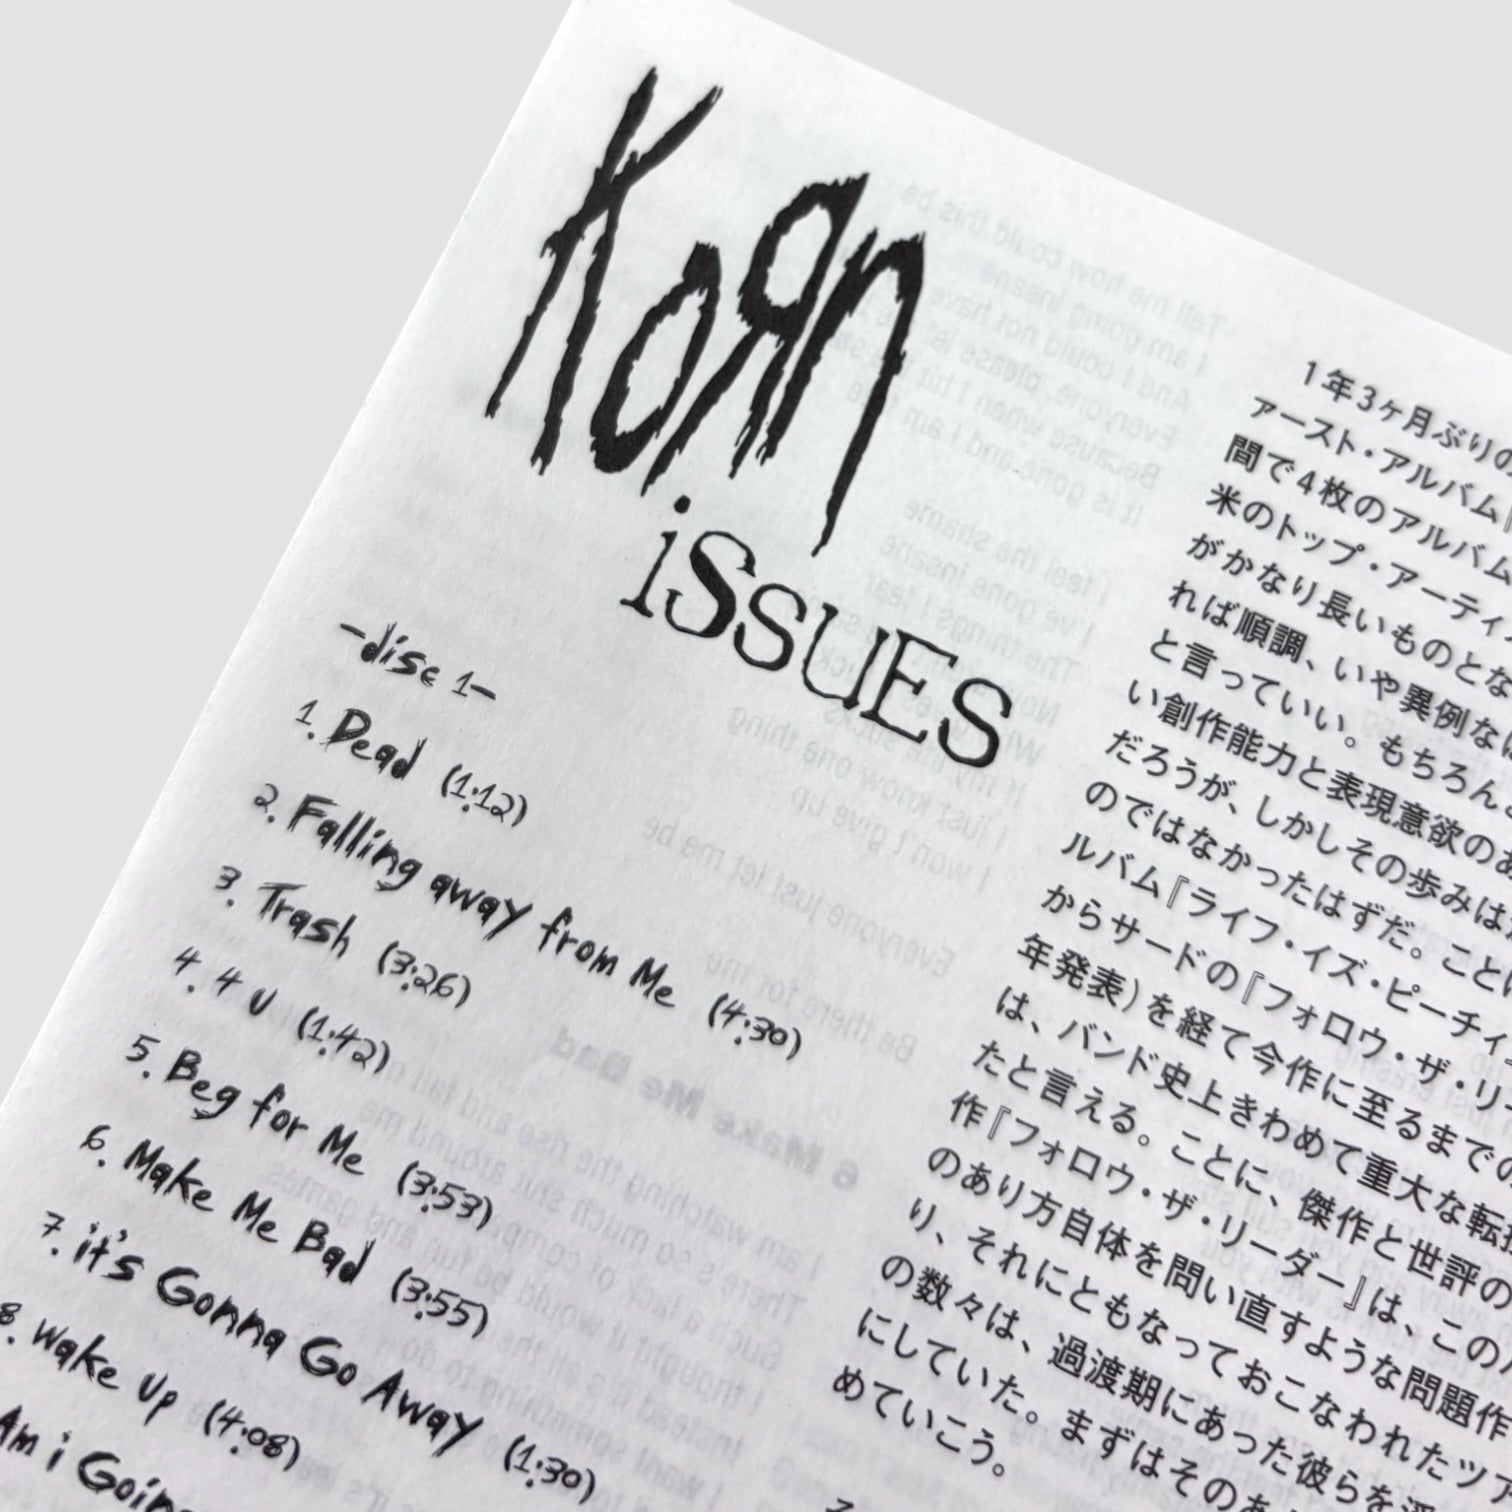 KoЯn
iSSUES
-disc 1-
1. Dead (1:12)
2. Falling away from Me (4:30)
3. Trash (3:26)
4. 4 U (1:42)
5. Beg for Me (3:53)
6. Make Me Bad (3:55)
7. it's Gonna Go Away (1:30)
8. Wake Up (4:08)
Am i Going
1年3ヶ月ぶりの
アースト・アルバム『
間で4枚のアルバム
米のトップ・アーティ
がかなり長いものとな
れば順調、いや異例な
と言っていい。もちろん
い創作能力と表現意欲のあ
だろうが、しかしその歩みは
のではなかったはずだ。ことに
ルバム『ライフ・イズ・ピーチィ
からサードの『フォロウ・ザ・リー
年発表)を経て今作に至るまでの
は、バンド史上きわめて重大な転
たと言える。ことに、傑作と世評の
作『フォロウ・ザ・リーダー』は、この
のあり方自体を問い直すような問題作
り、それにともなっておこなわれたツア
の数々は、過渡期にあった彼らを
にしていた。まずはその
めていこう。